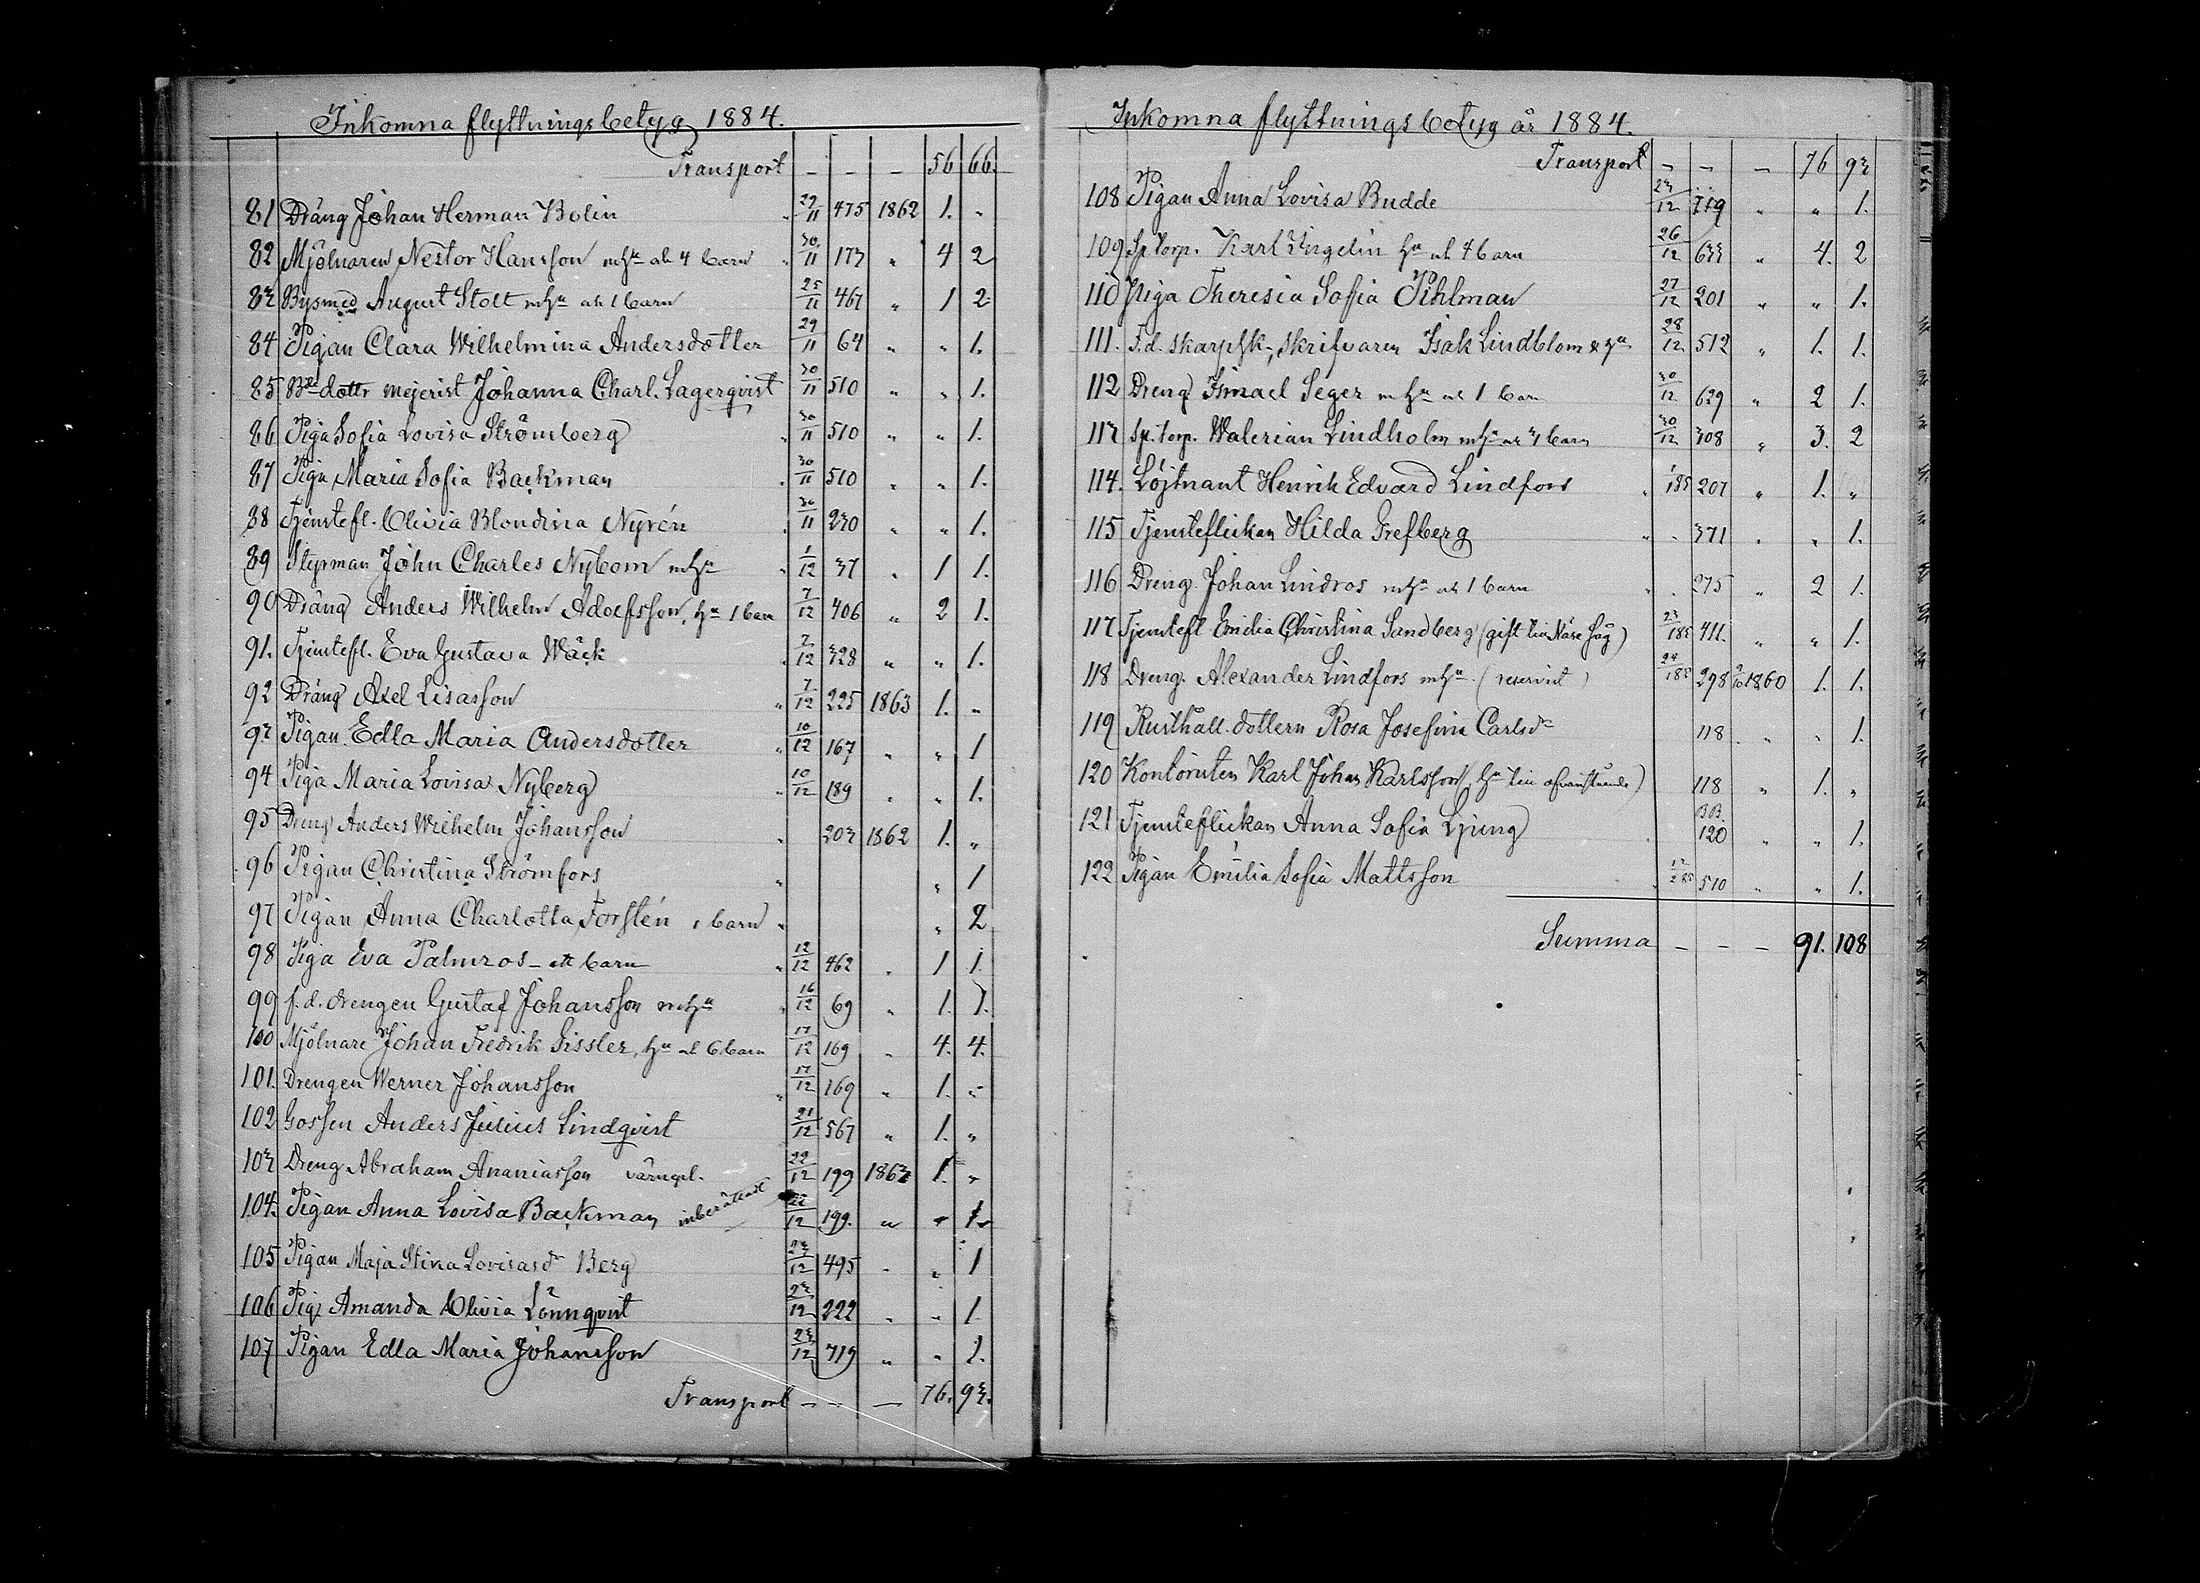 Inkomna flyttningsbetyg 1884.
Transport - - - 56 66.
81 Dräng Johan Herman Bolin " 29/11 475 1862 1. "
82 Mjölnaren Nestor Hansson m hu ah 4 barn " 30/11 173 " 4 2
83 Bysmed August Stolt m hu ah 1 barn 25/11 467 " 1 2
84 Pigan Clara Wilhelmina Andersdotter 29/11 64 " " 1.
85 Bde dottr mejerist Johanna Charl. Lagerqvist 30/11 510 " " 1.
86 Piga Sofia Lovisa Strömberg " 30/11 510 " " 1.
87 Piga Maria Sofia Backman " 30/11 510 " " 1.
88 Tjenstefl. Olivia Blondina Nyrén " 30/11 230 " " 1.
89 Styrman John Charles Nybom m hu " 1/12 37 " 1 1.
90 Dräng Anders Wilhelm Adolfsson, hu 1 barn 7/12 406 " 2 1.
91. Tjenstefl. Eva Gustava Wäck " 2/12 328 " " 1.
92 Dräng Axel Lisasson " 7/12 225 1863 1. "
93 Pigan Edla Maria Andersdotter " 10/12 167 " " 1
94 Piga Maria Lovisa Nyberg " 10/12 189 " " 1.
95 Dreng Anders Wilhelm Johansson " 203 1862 1. "
96 Pigan Christina Strömfors " " 1
97 Pigan Anna Charlotta Forstén 1 barn " " 2
98 Piga Eva Palmros - ett barn " 12/12 462 " 1 1.
99 f.d. drengen Gustaf Johansson m hu " 16/12 69 " 1. 1.
100 Mjölnare Johan Fredrik Gissler, hu ah 6 barn 17/12 169 " 4. 4.
101. Drengen Werner Johansson " 17/12 169 " 1. "
102 Gossen Anders Julius Lindqvist 21/12 567 " 1. "
103 Dreng Abraham Ananiasson värnpl. 22/12 199 1863 1. "
104. Pigan Anna Lovisa Backman inberättad 22/12 199. " " 1.
105 Pigan Maja Stina Lovisasdr Berg 23/12 495 " " 1
106 Piga Amanda Olivia Lönnqvist 23/12 222 " " 1.
107 Pigan Edla Maria Johansson 23/12 719 " " 1.
Transport - - - 76. 93.
Inkomna flyttningsbetyg år 1884.
Transport - - - 76 93
108 Pigan Anna Lovisa Budde 23/12 719 " " 1.
109 Sp. torp. Karl Engelin hu ah 4 barn 26/12 633 " 4. 2
110 Piga Theresia Sofia Pihlman 27/12 201 " " 1.
111. F.d. skarpsk., skrifvaren Isak Lindblom & hu 28/12 512 " 1. 1.
112 Dreng Ismael Seger m hu ah 1 barn 30/12 629 " 2 1.
113 Sp. torp. Walerian Lindholm m hu ah 3 barn 30/12 308 " 3. 2
114. Löjtnant Henrik Edvard Lindfors " 1/1 85 207 " 1. "
115 Tjensteflickan Hilda Grefberg " " 371 " " 1.
116 Dreng Johan Lindros m hu ah 1 barn " " 275 " 2 1.
117 Tjenstefl Emilia Christina Sandberg (gift 23/1 85 411. " " 1.
118 Dreng. Alexander Lindfors m hu. (reservist) 24/1 85 298 1860 1. 1.
119 Rusthåll. dottern Rosa Josefina Carlsdr 118 " " 1.
120 Kontoristen Karl Johan Karlsson 118 " 1. "
121 Tjensteflickan Anna Sofia Ljung BB. 120 " " 1.
122 Pigan Emilia Sofia Mattsson 12/2 85 510 " " 1.
Summa - - - 91. 108